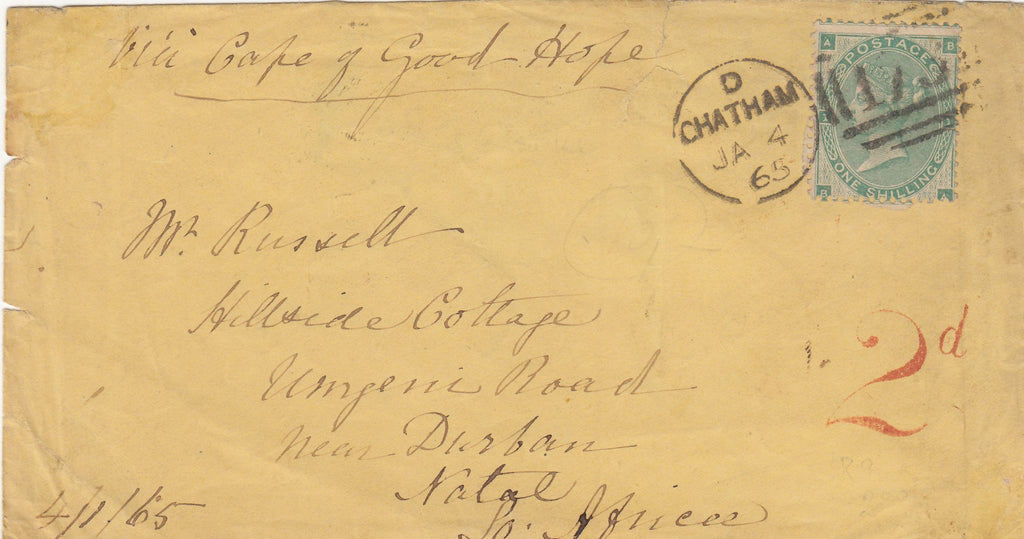 Via Cape of Good Hope
D
CHATHAM
JA 4
65
A B
POSTAGE
ONE SHILLING
B A
Mr Russell
Hillside Cottage
Umgeni Road
near Durban
Natal
So. Africa
2d
4/1/65